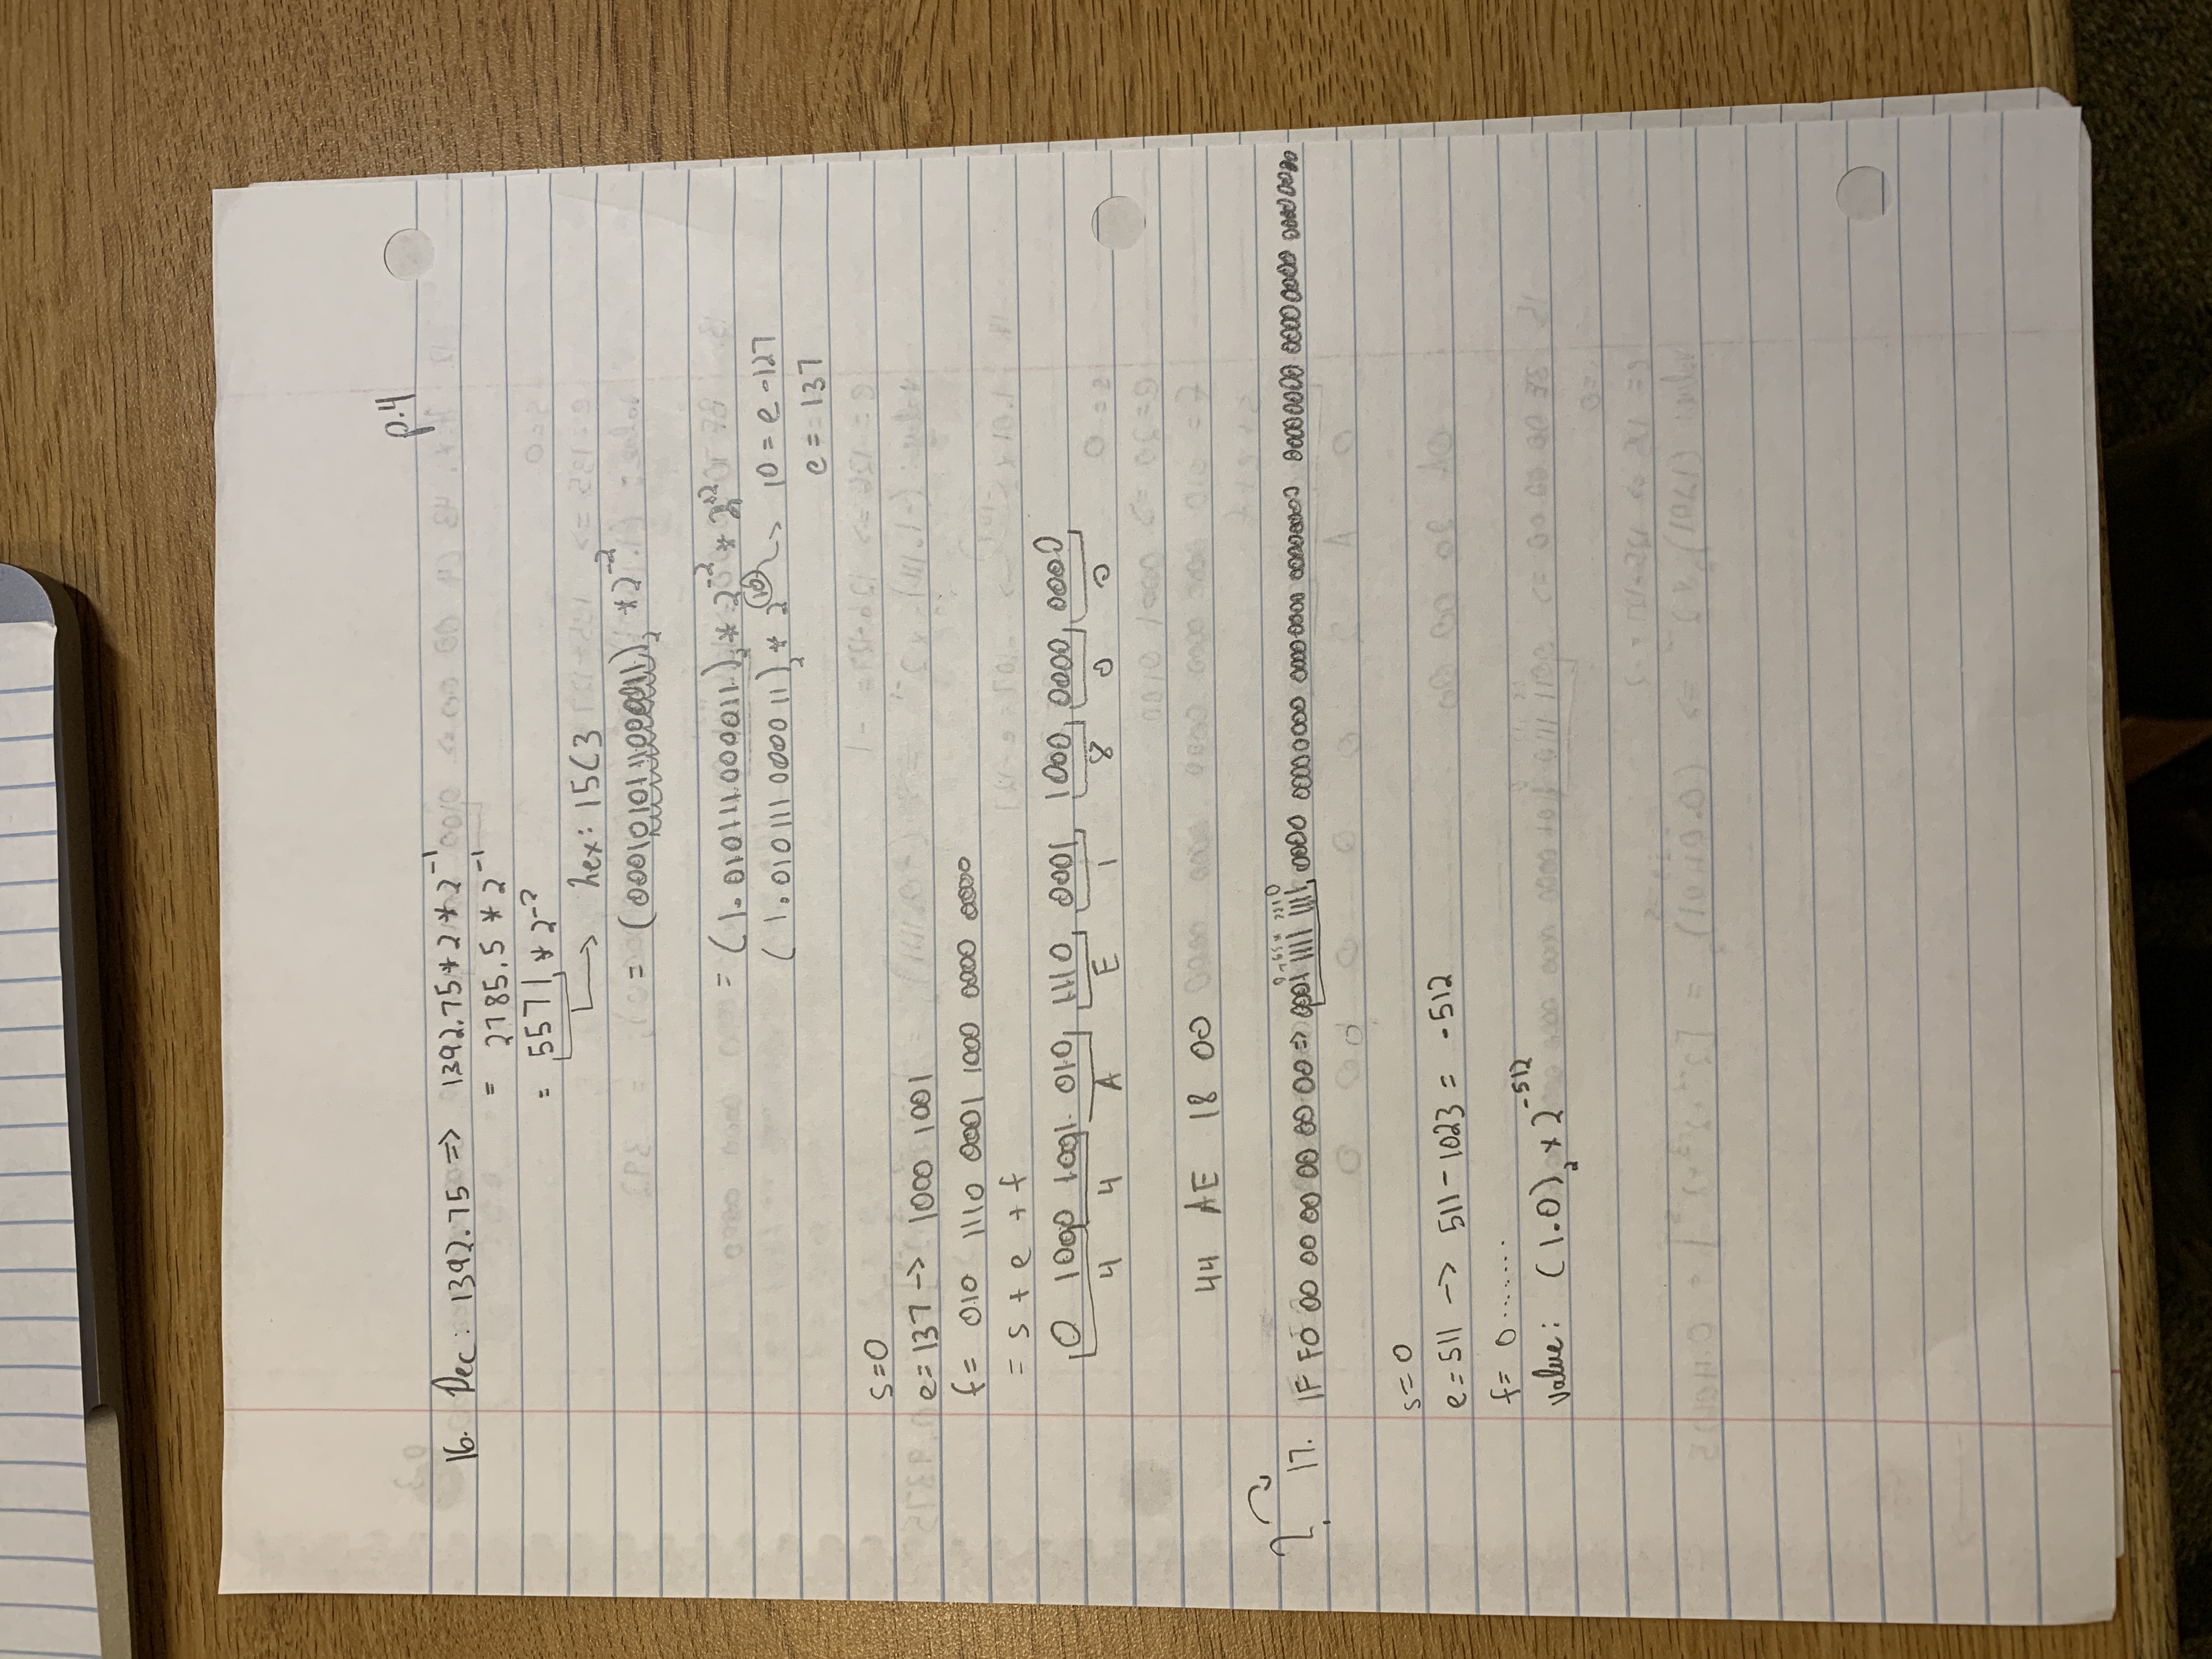 p.4
16. Dec: 1392.75 => 1392.75 * 2 * 2^-1
= 2785.5 * 2^-1
= 5571 * 2^-2
hex: 15C3
= (0001010111000011)₂ * 2^-2
= (1.010111000011)₂ * 2^-2 * 2^12
(1.010111000011)₂ * 2^10 → 10 = e-127
e = 137
s=0
e=137 → 1000 1001
f= 010 1110 0001 1000 0000 0000
= s + e + f
0 1000 1001 010 1110 0001 1000 0000 0000
4 4 A E 1 8 0 0
44 AE 18 00
?
17. 1F F0 00 00 00 00 00 00 => 0001 1111 1111 0000 00000000 00000000 00000000 00000000 00000000 00000000
0
s=0
e=511 → 511-1023 = -512
f= 0.......
value: (1.0)₂ x 2^-512